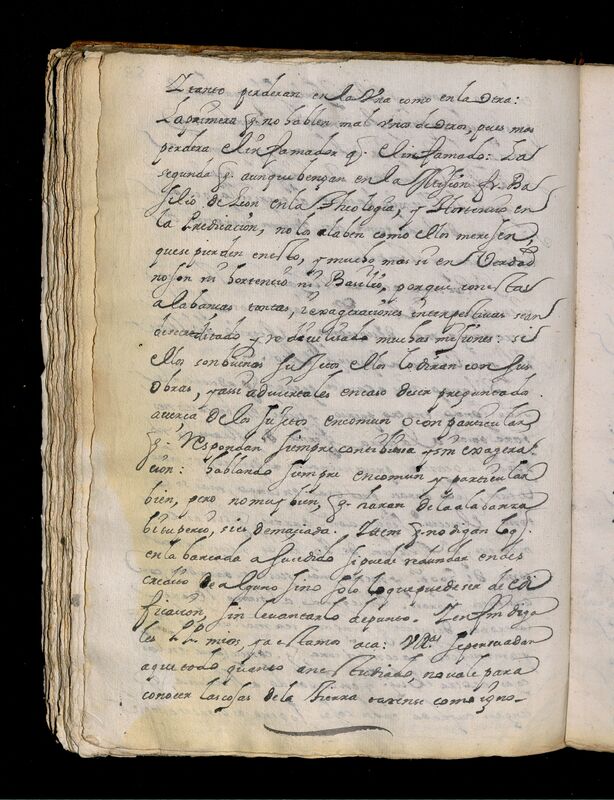 Y tanto perderan en la Vna como en la otra:
La primera q. no hablen mal vnos de otros, pues mas
perdera el infamador q. el infamado: La
segunda q. aunque bengan en la Mision fr. Ba
silio de Leon en la Theologia, y Hortencio en
la Predicacion, no lo alaben como ellos meresen,
que se pierden en esto, y mucho mas si en Verdad
no son ni hortencio ni Basilio, porque con estas
alabansas tontas, i exageraciones intempestivas se an
desacreditado y se dificultado muchas misiones: si
ellos son buenos sujetos ellos lo diran con sus
Obras, y assi adviertales en caso de ser preguntado
acerca de los sujetos en comun o en particular
q. respondan siempre con tibiesa y sin exagera
cion: hablando siempre en comun y particular
bien, pero no muy bien, q. haran de la alabanza
bituperio, si es demasiada. Item q. no digan lo q.
en la barcada a sucedido si puede redundar en des
credito de alguno sino solo lo que puede ser de edi
ficacion, sin levantarlo de punto. Y en fin diga
les PP. mios, ya estamos aca: VRas. se persuadan
a que todo quanto an estudiado, no vale para
conocer las cosas de la tierra oriense como igno-